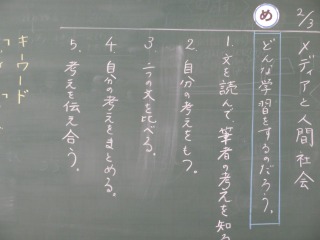 2/3
メディアと人間社会
め
どんな学習をするのだろう。
1. 文を読んで、筆者の考えを知る
2. 自分の考えをもつ。
3. 二つの文を比べる。
4. 自分の考えをまとめる。
5. 考えを伝え合う。
キーワード